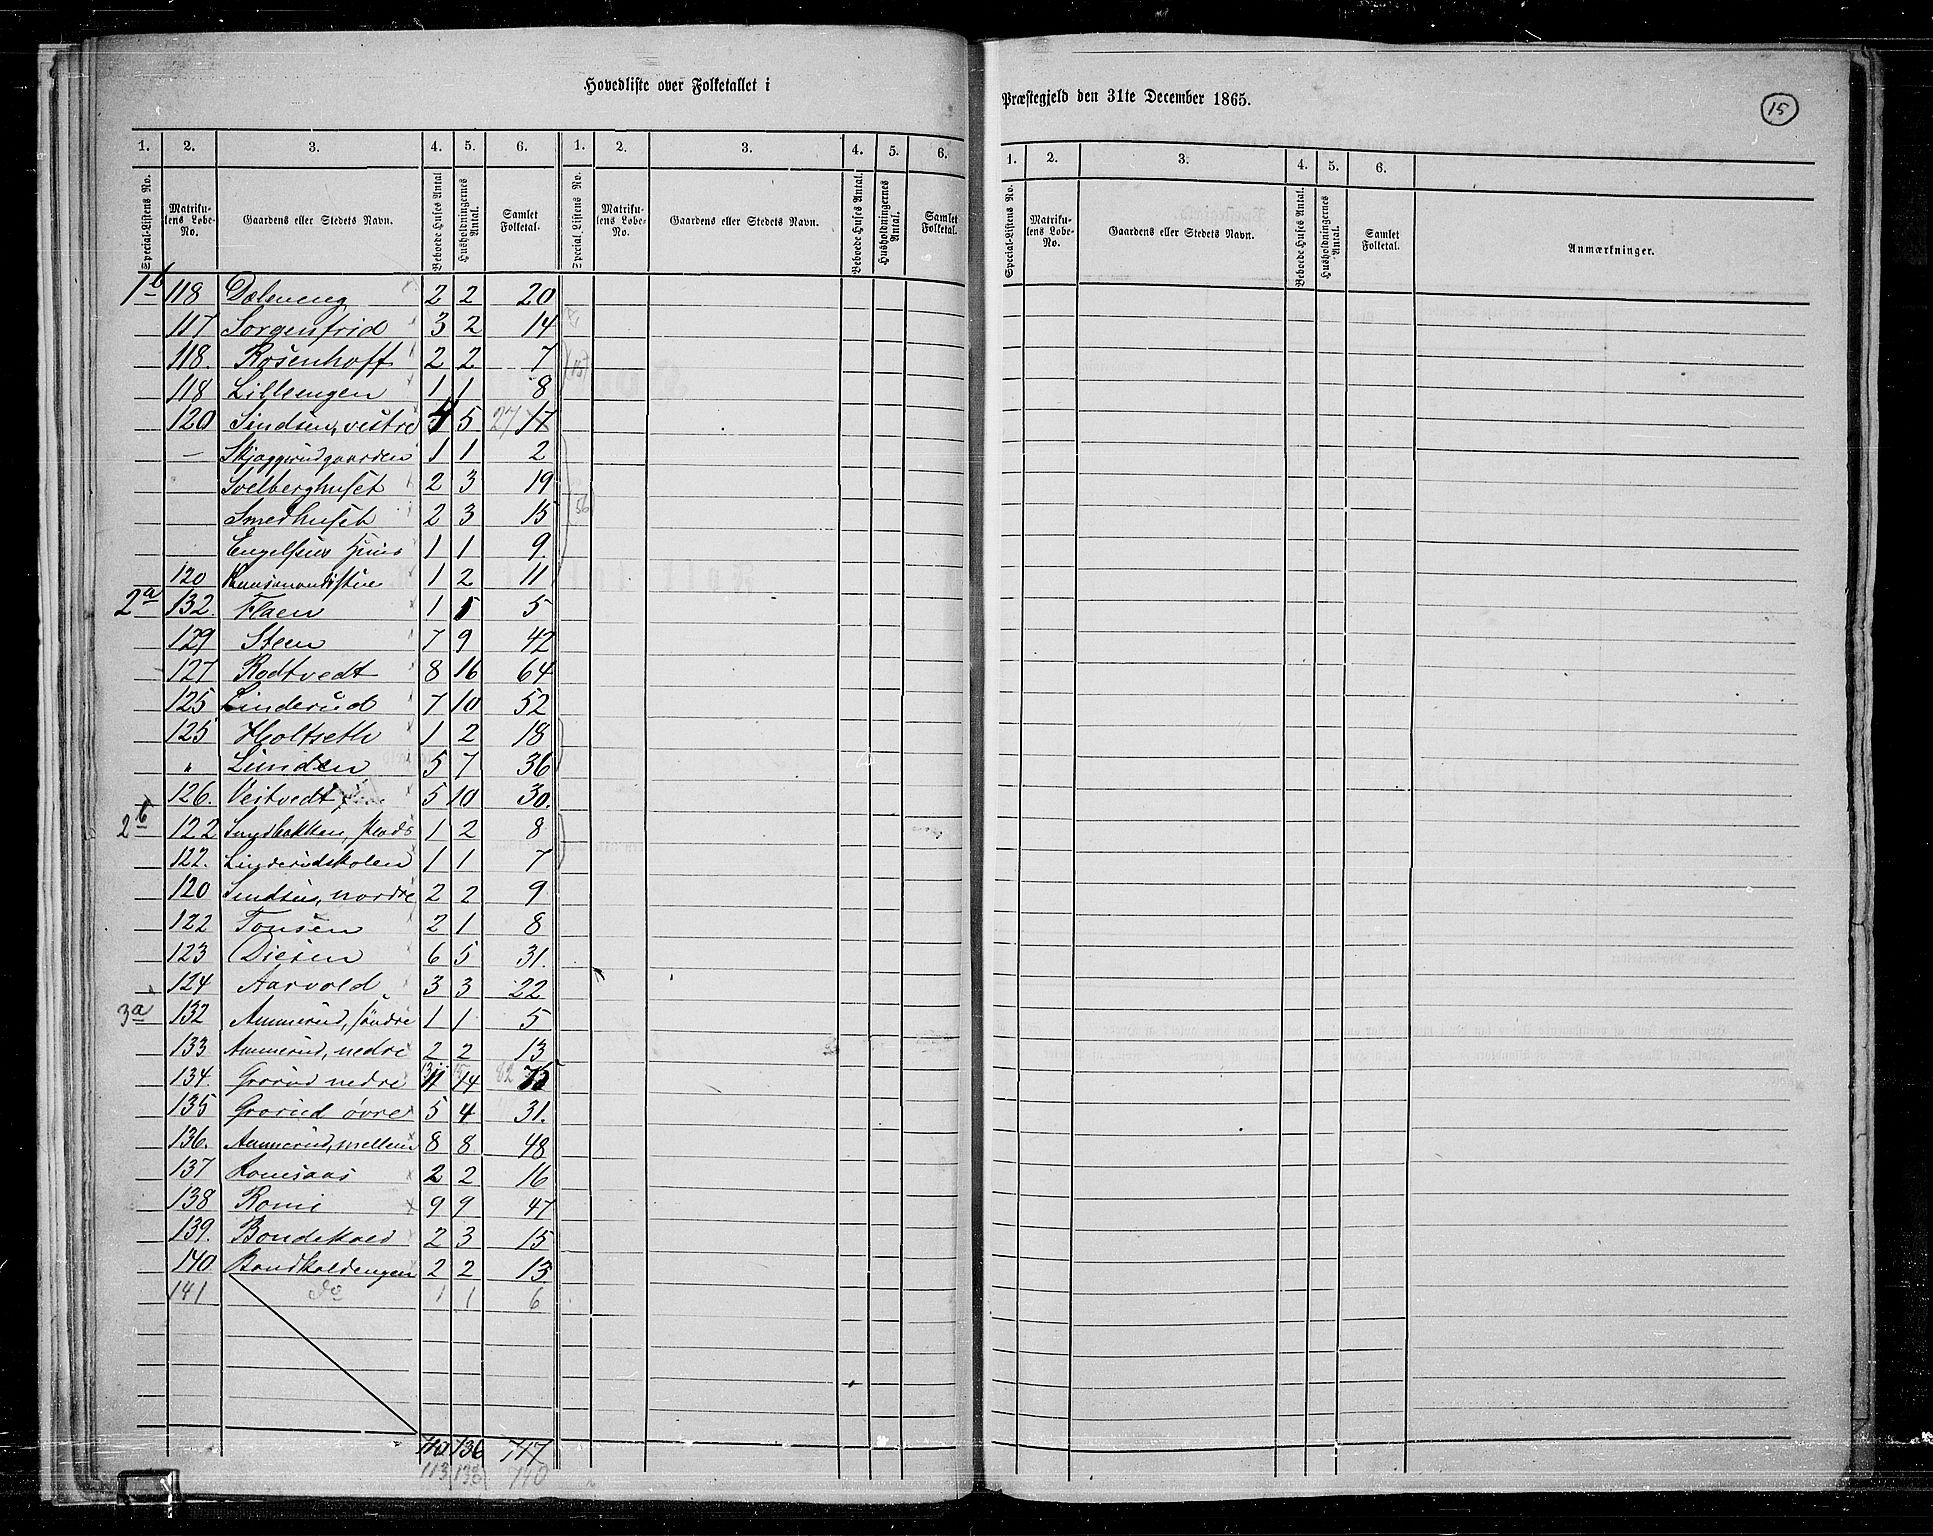 Hovedliste over Folketallet i
Præstegjeld den 31te December 1865.
15
1. 2. 3. 4. 5. 6. 1. 2. 3. 4. 5. 6.
Special-Listens No. Matrikulens Løbe-No. Gaardens eller Stedets Navn. Beboede Huses Antal Husholdningernes Antal. Samlet Folketal. Special-Listens No. Matrikulens Løbe-No. Gaardens eller Stedets Navn. Beboede Huses Antal. Husholdningernes Antal. Samlet Folketal.
1b 118 Dæleneng 2 2 20
117 Sorgenfrid 3 2 14
118. Rosenhoff 2 2 7
118 Lilleengen 1 1 8
120 Sindsen, vestre 4 5 27 17
— Skjøggerudgaarden 1 1 2
Svelberghuset 2 3 19
Smedhuset 2 3 15 56
Engelsens Huus 1 1 9.
120 1 2 11
2a 132. Flaen 1 5 5
129 Steen 7 9 42
127 Rødtvedt 8 16 64
125 Linderud 7 10 52
125 Holtseth 1 2 18
" Lunden 5 7 36
126. Veitvedt 5 10 30.
2b 122 Sandbakken, 1 2 8
122. Linderudskolen 1 1 7
120 Sindsen, nordre 2 2 9
122 Tonsen 2 1 8
123 Disen 6 5 31.
124 Aarvold 3 3 22
3a 132 Ammerud, søndre 1 1 5
133 Ammerud, nedre 2 2 13
134. Grorud nedre 11 14 82 75
135 Grorud øvre 5 4 31.
136. Ammerud, mellem 8 8 48
137 Romsaas 2 2 16
138 Romi 9 9 47
139. Bondekold 2 3 15
140. Bondkoldengen 2 2 13
141 do 1 1 6
110 136 717
113 138 740
1. 2. 3. 4. 5. 6.
Special-Listens No. Matrikulens Løbe-No. Gaardens eller Stedets Navn. Beboede Huses Antal. Husholdningernes Antal. Samlet Folketal. Anmærkninger.